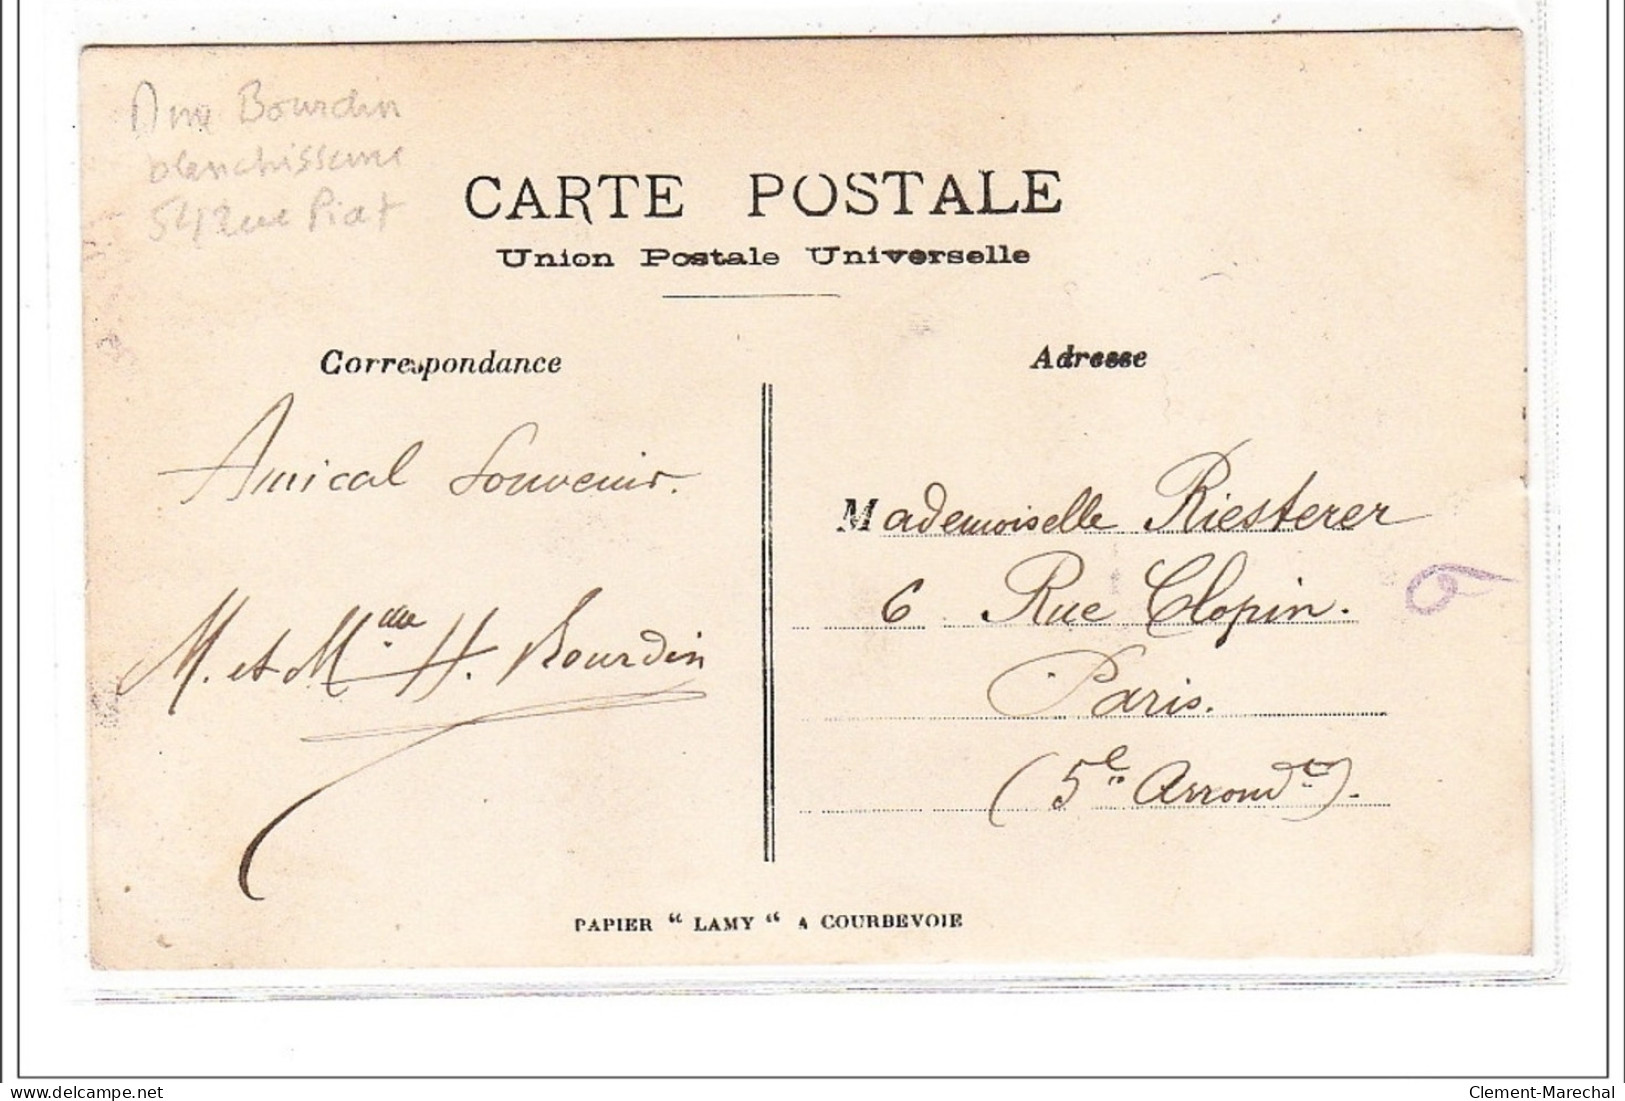 Mme Bourdin
blanchisseuse
54 rue Piat
CARTE POSTALE
Union Postale Universelle
Correspondance
Adresse
Amical Souvenir.
M. et Mme H. Bourdin
Mademoiselle Riesterer
6 Rue Clopin.
Paris.
(5e Arrondt).
6
PAPIER “ LAMY “ A COURBEVOIE
delcampe.net
Clement-Marechal